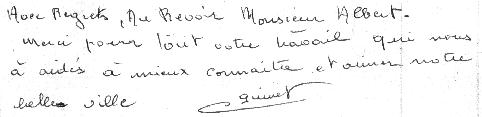 Avec Regrets, Au Revoir Monsieur Albert.
Merci pour tout votre travail qui nous
à aidés à mieux connaître et aimer notre
belle ville